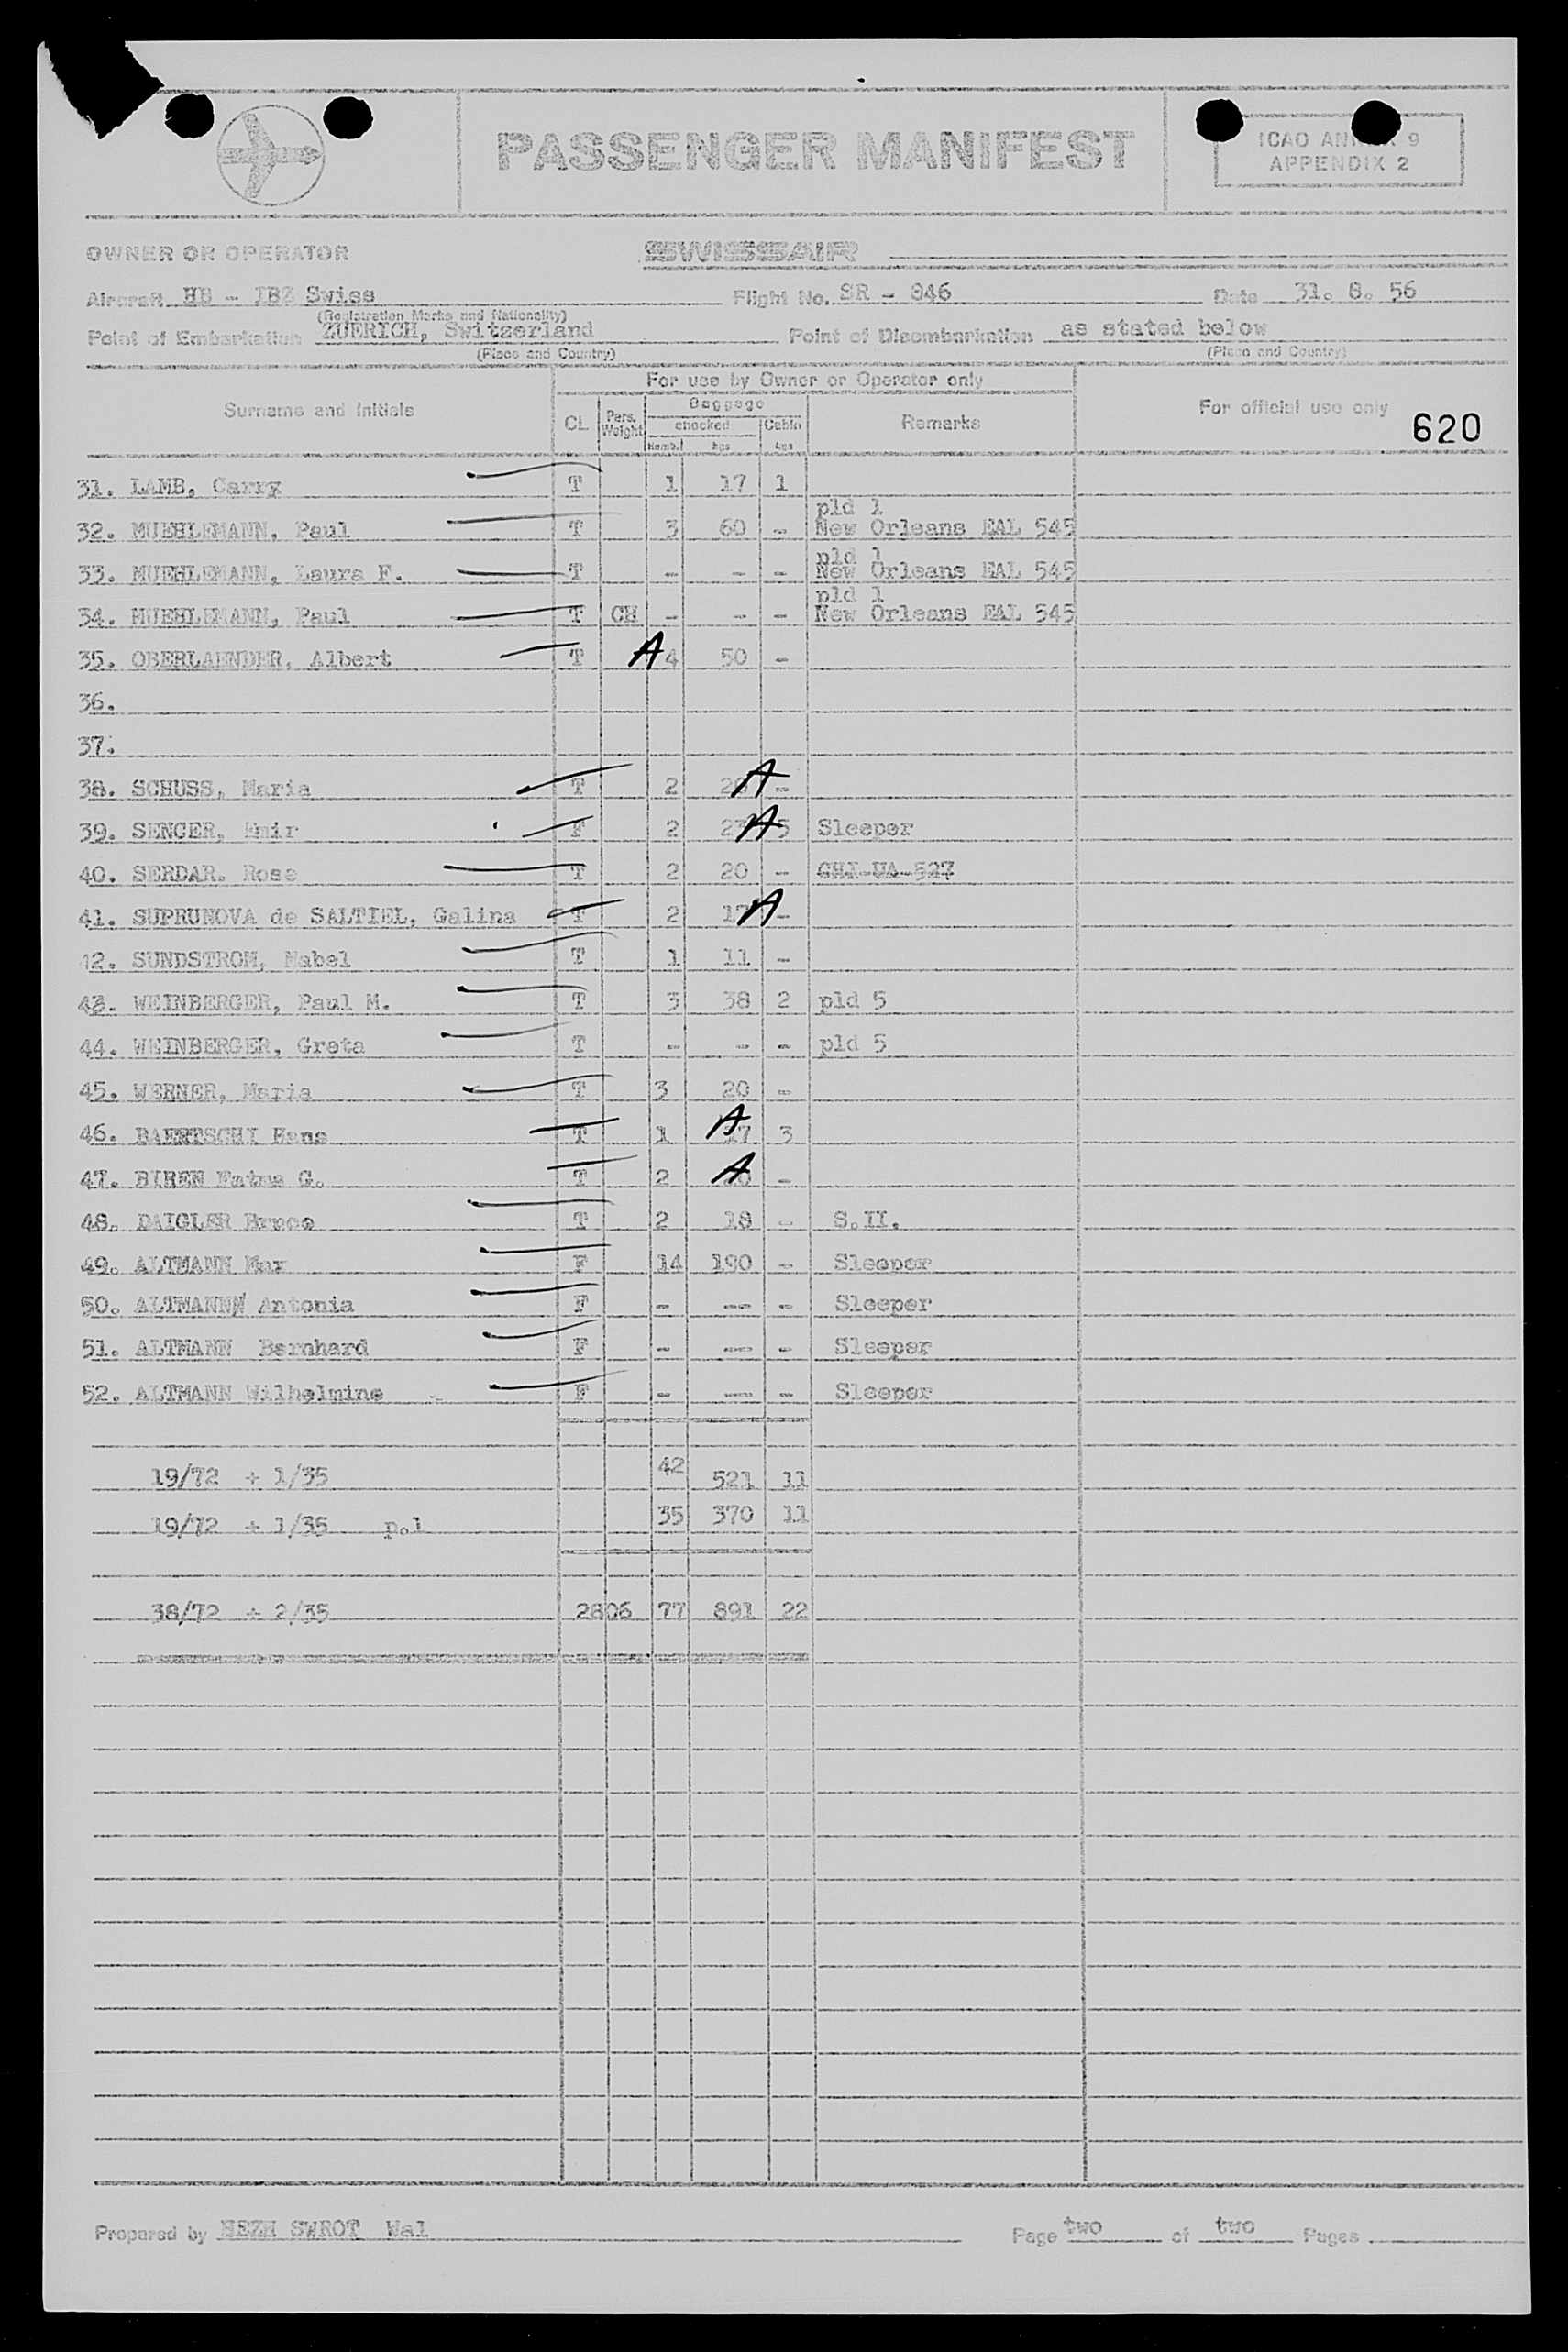 PASSENGER MANIFEST
ICAO ANNEX 9
APPENDIX 2
OWNER OR OPERATOR SWISSAIR
Aircraft HB - IBZ Swiss Flight No. SR - 846 Date 31. 8. 56
(Registration Marks and Nationality)
Point of Embarkation ZUERICH, Switzerland Point of Disembarkation as stated below
(Place and Country) (Place and Country)
For use by Owner or Operator only
Surname and Initials CL Pers. Weight Baggage checked Cabin Remarks For official use only
Numb. kgs kgs
620
31. LAMB, Carry T 1 17 1
pld 1
32. MUEHLEMANN, Paul T 3 60 - New Orleans EAL 545
pld 1
33. MUEHLEMANN, Laura F. T - - - New Orleans EAL 545
pld 1
34. MUEHLEMANN, Paul T CH - - - New Orleans EAL 545
35. OBERLAENDER, Albert T A 4 50 -
36.
37.
38. SCHUSS, Maria T 2 A -
39. SENCER, Emir F 2 A 5 Sleeper
40. SERDAR. Rose T 2 20 - CHI-UA-527
41. SUPRUNOVA de SALTIEL, Galina T 2 A -
42. SUNDSTROM, Mabel T 1 11 -
43. WEINBERGER, Paul M. T 3 38 2 pld 5
44. WEINBERGER, Greta T - - - pld 5
45. WERNER, Maria T 3 20 -
46. BAERTSCHI Hans T 1 A 3
47. BIREN Fatma G. T 2 A -
48. DAIGLER Bruce T 2 18 - S.II.
49. ALTMANN Max F 14 190 - Sleeper
50. ALTMANNN Antonia F - -- - Sleeper
51. ALTMANN Bernhard F - -- - Sleeper
52. ALTMANN Wilhelmine F - -- - Sleeper
19/72 + 1/35 42 521 11
19/72 + 1/35 p.1 35 370 11
38/72 + 2/35 2806 77 891 22
Prepared by SWROT Wal Page two of two Pages